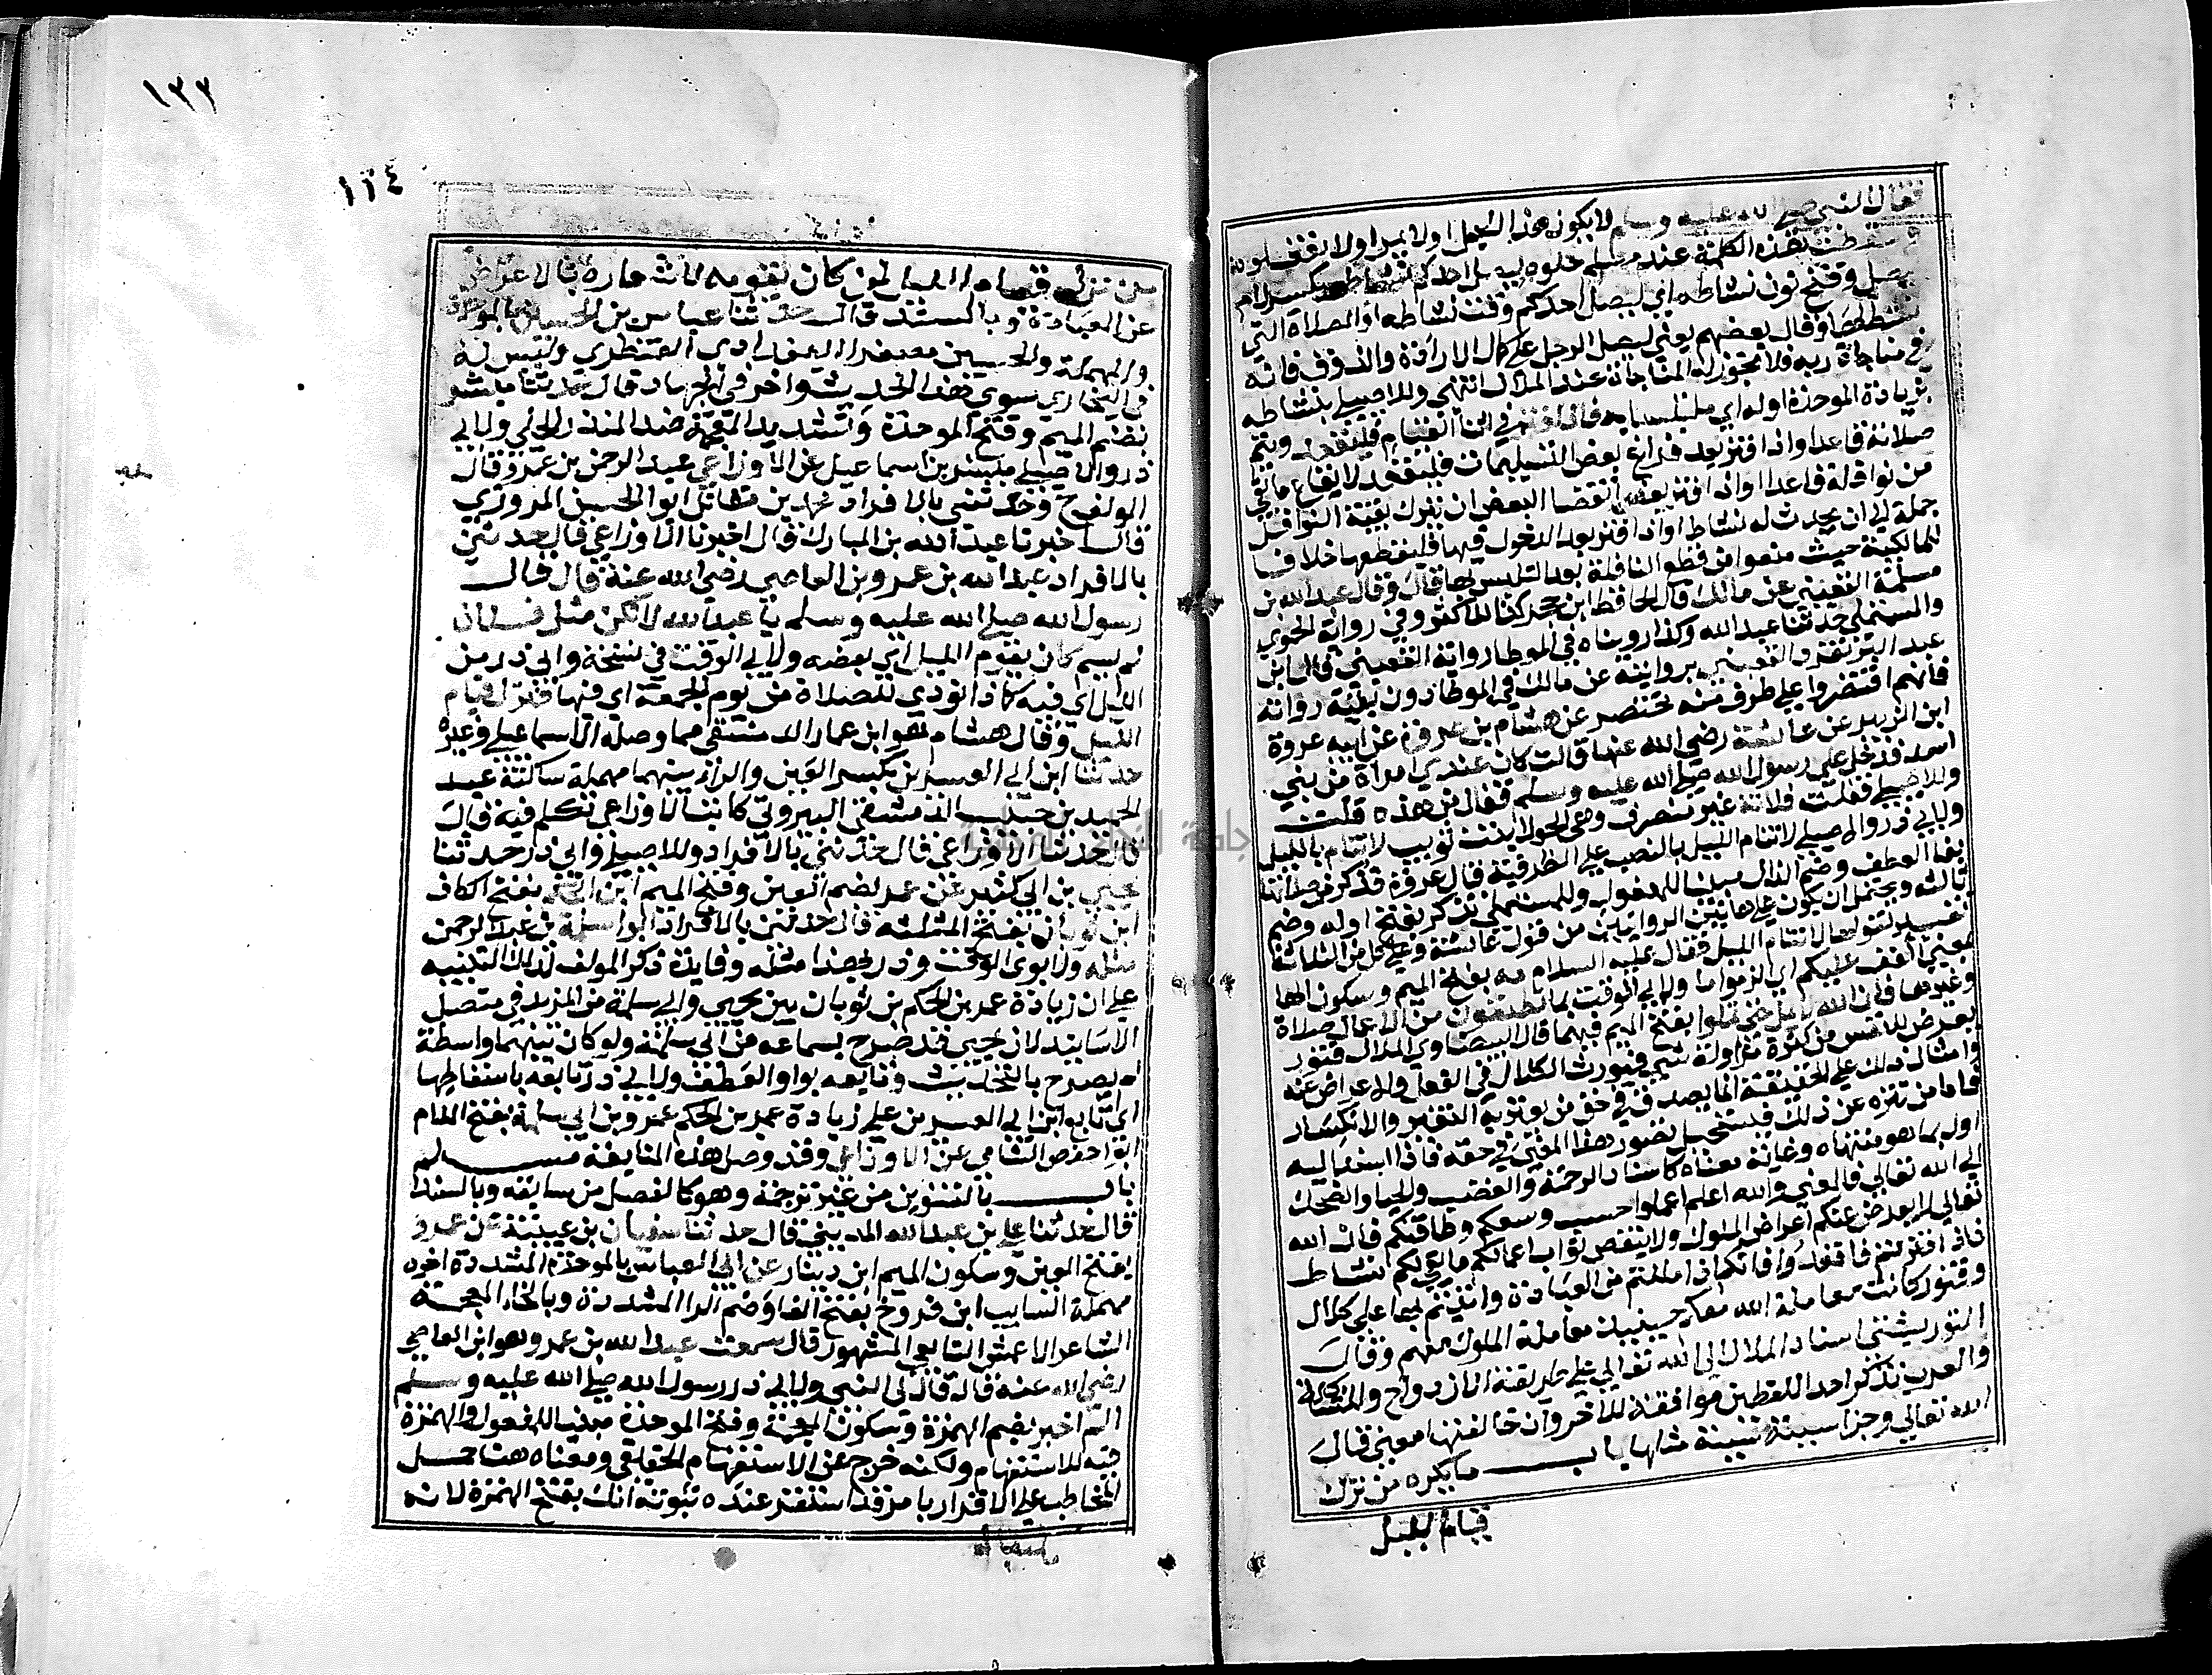 فقال النبي صلى الله عليه وسلم لا يكون هذا الشيء اولا يمد اولا تفعلوه
وسقطت هذه الكلمة عند مسلم حلوه ليصل احدكم نشاطه بكسر لام
يصل وفتح نون نشاطه اي ليصل احدكم وقت نشاطه او الصلاة التي
نشط لها وقال بعضهم يعني ليصل الرجل على كمال الارادة والذوق فانه
في مناجاة ربه فلا تجوز له المناجاة عند الملال انتهى وللاصيلي بنشاطه
بزيادة الموحدة اوله اي ملتبسا به فاذا فتر في اثنا القيام فليقعد ويتم
صلاته قاعدا واذا فتر بعد فراغ بعض التسليمات فليقعد لايقاع ما بقي
من نوافله قاعدا واذا فتر بعد انقضا البعض ان يترك بقية النوافل
جملة الى ان يحدث له نشاط او اذا فتر بعد الدخول فيها فليقطعها خلافا
للمالكية حيث منعوا من قطع النافلة بعد التلبس بها قال وقال عبد الله بن
مسلمة القعنبي عن مالك قال الحافظ ابن حجر كذا للاكثر وفي رواية الحموي
والمستملي حدثنا عبد الله وكذا رويناه في الموطا رواية القعنبي قال ابن
عبد البر تفرد القعنبي بروايته عن مالك في الموطا دون بقية رواته
فانهم اقتصروا على طرف منه مختصر عن هشام بن عروة عن ابيه عروة
ابن الزبير عن عائشة رضي الله عنها قالت كان عندي امراة من بني
اسد فدخل علي رسول الله صلى الله عليه وسلم فقال من هذه قلت
وللاصيلي فقلت فلانة غير منصرف وهي الحولا بنت تويت لا تنام بالليل
ولابي ذر والاصيلي لا تنام الليل بالنصب على الظرفية قال عروة فذكر من صلاتها
بفا العطف وضم الذال مبنيا للمفعول وللمستملي تذكر بفتح اوله وضم
ثالثه ويحتمل ان يكون على هاتين الروايتين من قول عائشة وعلى كل من الثلاثة
تفسير لقولها لا تنام الليل فقال عليه السلام مه بفتح الميم وسكون الها
بمعنى اكفف عليكم اي الزموا ما ولابي الوقت بما تطيقون من الاعمال صلاة
وغيرها فان الله لا يمل حتى تملوا بفتح الميم فيهما قال البيضاوي الملال فتور
يعرض للنفس من كثرة مزاولة شي فيورث الكلال في الفعل والاعراض عنه
وامثال ذلك على الحقيقة انما يصدق في حق من يعتريه التغير والانكسار
فاما من تنزه عن ذلك فيستحيل تصور هذا المعنى في حقه فاذا اسند اليه
اول بما هو منتهاه وغاية معناه كاسناد الرحمة والغضب والحيا والضحك
الى الله تعالى فالمعنى والله اعلم اعملوا حسب وسعكم وطاقتكم فان الله
تعالى لا يعرض عنكم اعراض الملوك ولا ينقص ثواب اعمالكم ما بقي لكم نشاط
فاذا فترتم فاقعدوا فانكم اذا مللتم من العبادة واتيتم بها على كلال
وفتور كانت معاملة الله معكم حينئذ معاملة الملوك منهم وقال
التوربشتي اسناد الملال الى الله تعالى على طريقة الازدواج والمشاكلة
والعرب تذكر احد اللفظين موافقة للاخر وان خالفتها معنى قال
الله تعالى وجزا سيئة سيئة مثلها باب ما يكره من ترك
قيام الليل
١٣٢
١١٤
من ترك قيام الليل لمن كان يقومه لاشعاره بالاعراض
عن العبادة وبالسند قال حدثنا عباس بن الحسين بالموحدة
والمهملة والحسين مصغرا البغدادي القنطري وليس له
في البخاري سوى هذا الحديث واخر في الجهاد قال حدثنا مبشر
بضم الميم وفتح الموحدة وتشديد المعجمة ضد المنذر الحلبي ولابي
ذر والاصيلي مبشر بن اسماعيل عن الاوزاعي عبد الرحمن بن عمرو قال
المولف ح وحدثني بالافراد محمد بن مقاتل ابو الحسن المروزي
قال اخبرنا عبد الله بن المبارك قال اخبرنا الاوزاعي قال حدثني
بالافراد عبد الله بن عمرو بن العاصي رضي الله عنه قال قال
رسول الله صلى الله عليه وسلم يا عبد الله لا تكن مثل فلان
لم يسم كان يقوم الليل اي بعضه ولابي الوقت في نسخة وابي ذر من
الليل اي فيه كاذا نودي للصلاة من يوم الجمعة اي فيها فترك قيام
الليل وقال هشام هو ابن عمار الدمشقي مما وصله الاسماعيلي وغيره
حدثنا ابن ابي العشرين بكسر العين والراء بينهما مهملة ساكنة عبد
الحميد بن حبيب الدمشقي البيروتي كاتب الاوزاعي تكلم فيه قال
حدثنا الاوزاعي قال حدثني بالافراد وللاصيلي وابي ذر حدثنا
يحيى بن ابي كثير عن عمر بضم العين وفتح الميم ابن الحكم بفتح الكاف
ابن ثوبان بفتح المثلثة قال حدثني بالافراد ابو سلمة بن عبد الرحمن
مثله ولابوي الوقت وذر بهذا مثله وفايدة ذكر المولف لذلك التنبيه
على ان زيادة عمر بن الحكم بن ثوبان بين يحيى وابي سلمة من المزيد في متصل
الاسانيد لان يحيى قد صرح بسماعه من ابي سلمة ولو كان بينهما واسطة
لم يصرح بالتحديث وتابعه بواو العطف ولابي ذر تابعه باسقاطها
اي تابع ابن ابي العشرين على زيادة عمر بن الحكم عمرو بن ابي سلمة بفتح اللام
ابو حفص الشامي عن الاوزاعي وقد وصل هذه المتابعة مسلم
باب بالتنوين من غير ترجمة وهو كالفصل من سابقه وبالسند
قال حدثنا علي بن عبد الله المديني قال حدثنا سفيان بن عيينة عن عمرو
بفتح العين وسكون الميم ابن دينار عن ابي العباس بالموحدة المشددة اخره
مهملة السايب ابن فروخ بفتح الفا وضم الرا المشددة وبالخاء المعجمة
الشاعر الاعمى التابعي المشهور قال سمعت عبد الله بن عمرو هو ابن العاصي
رضي الله عنه قال قال لي النبي ولابي ذر رسول الله صلى الله عليه وسلم
الم اخبر بضم الهمزة وسكون المعجمة وفتح الموحدة مبنيا للمفعول والهمزة
فيه للاستفهام ولكنه خرج عن الاستفهام الحقيقي ومعناه هنا حمل
المخاطب على الاقرار بامر قد استقر عنده ثبوته انك بفتح الهمزة لانه